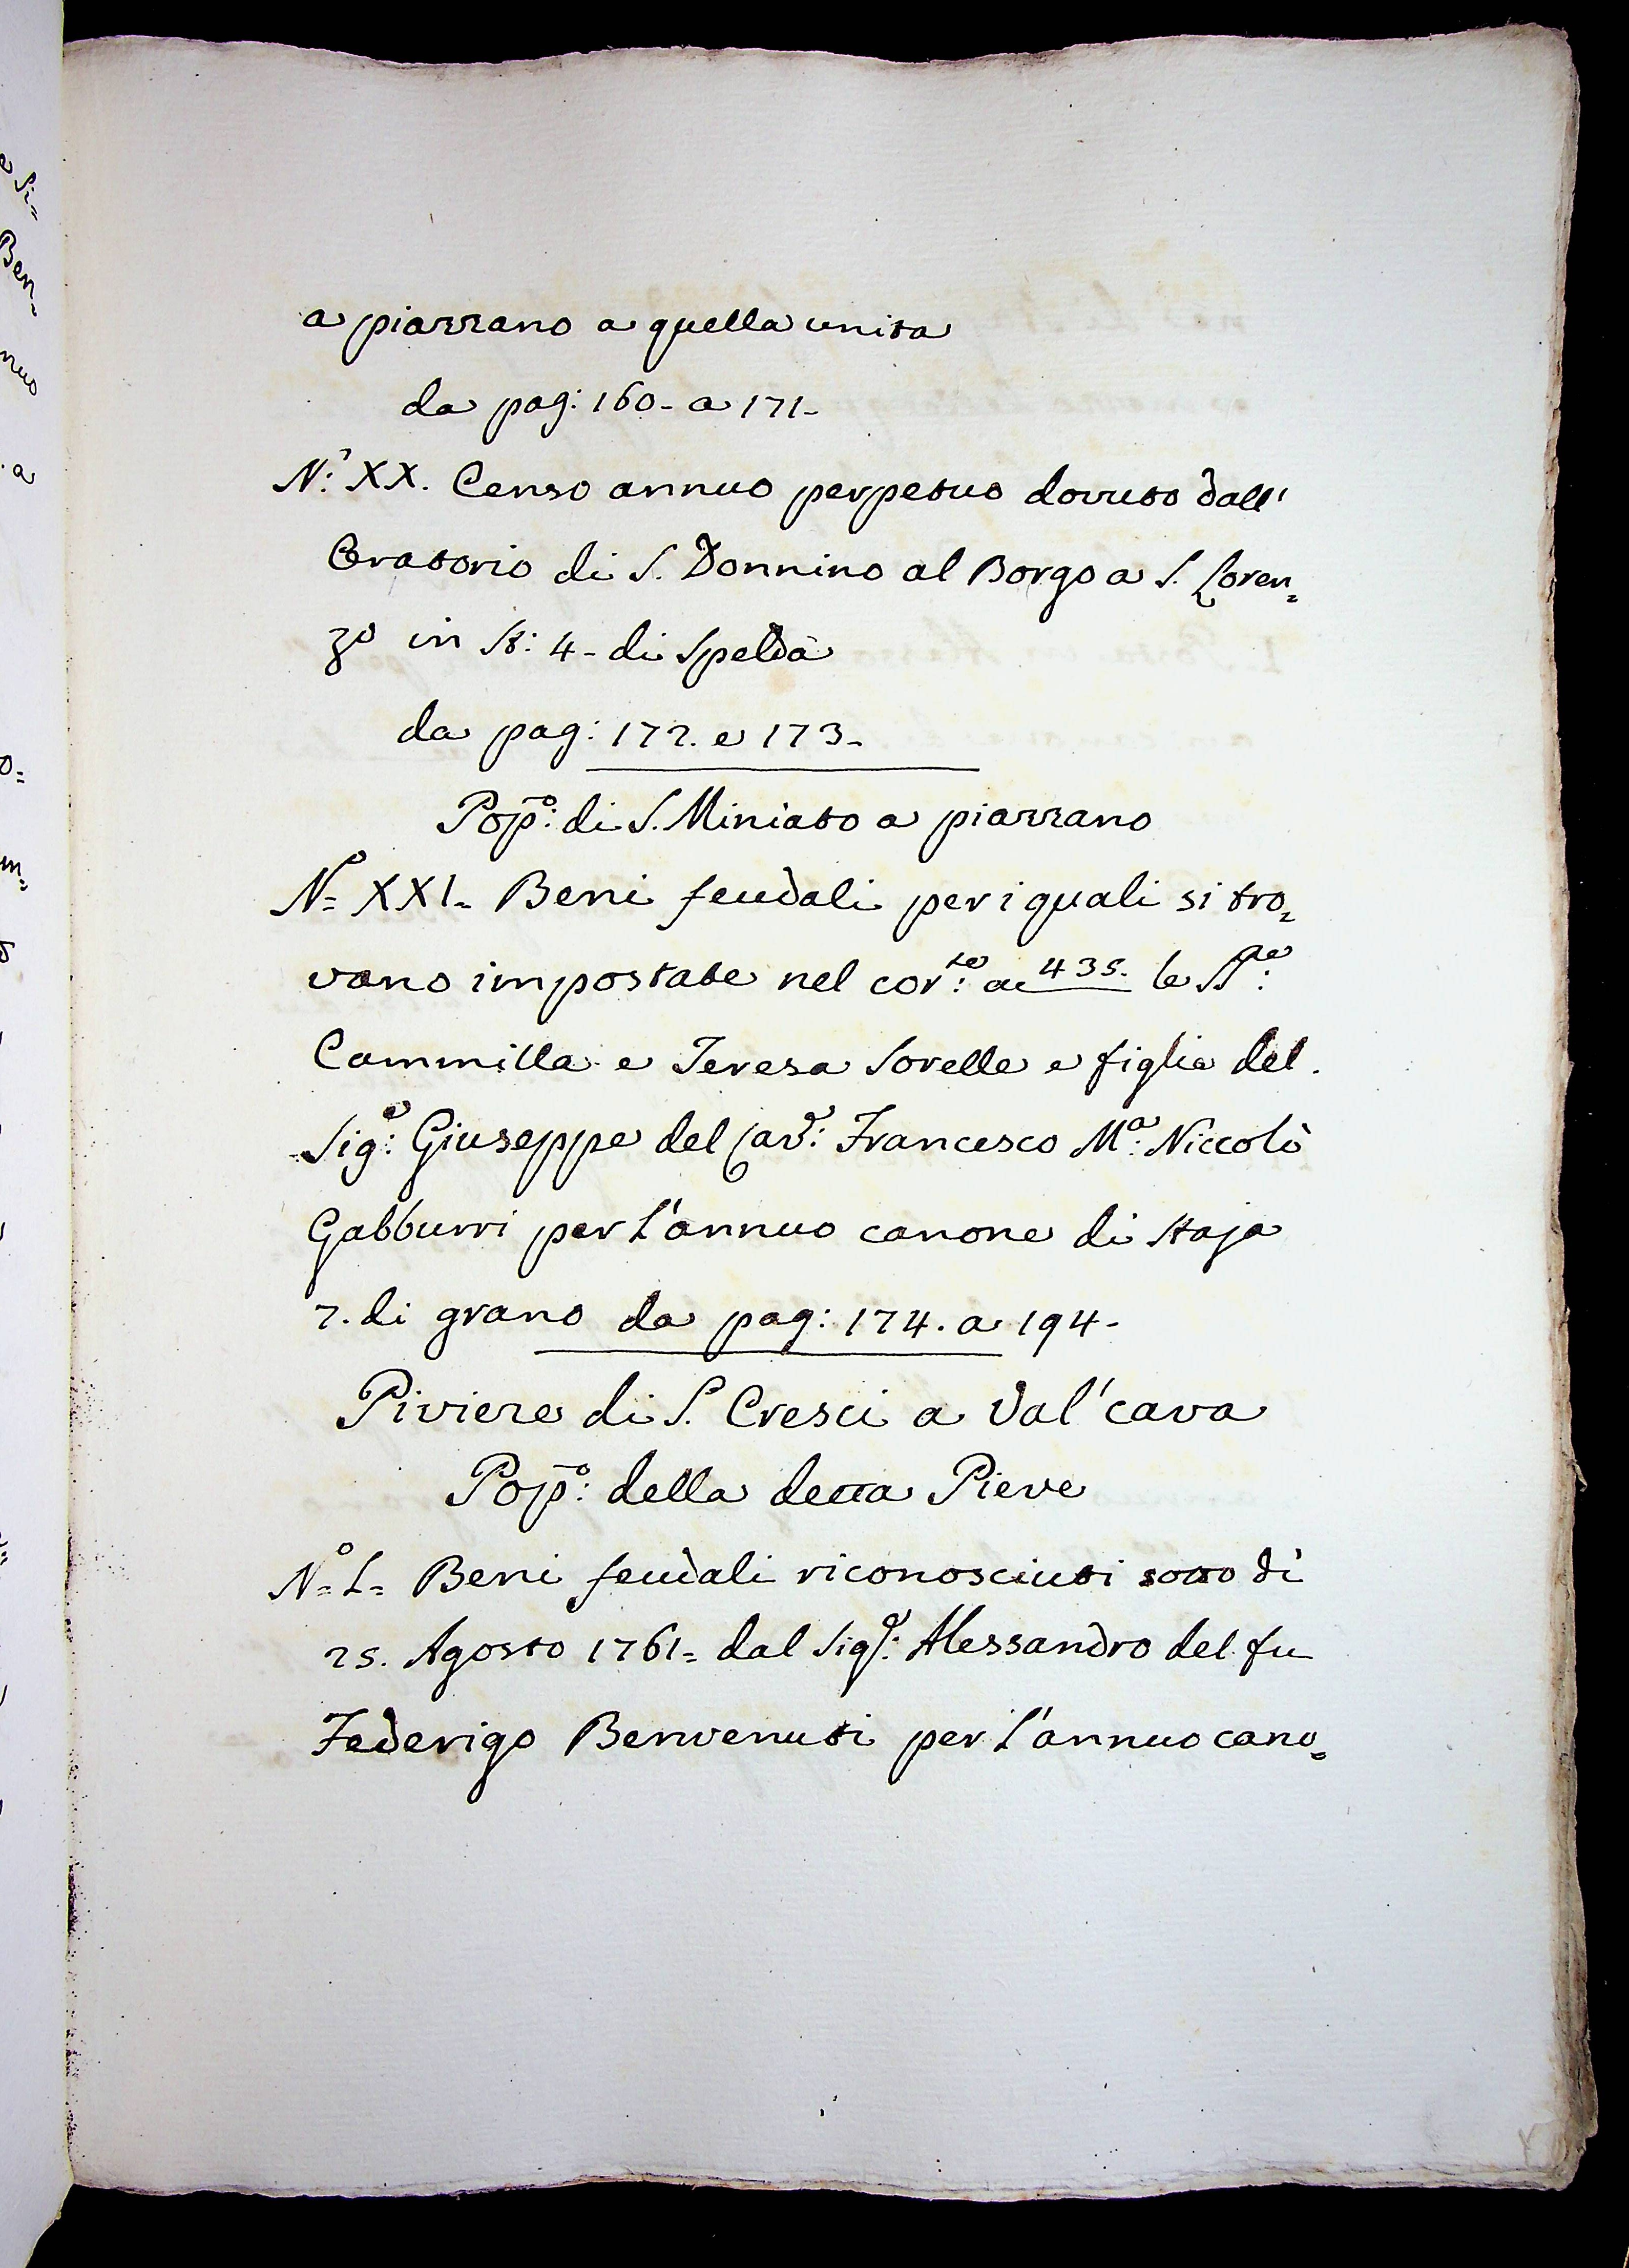 a piazzano a quella unita
da pag: 160- a 171-
N.º XX. Censo annuo perpetuo dovuto dall'
Oratorio di S. Donnino al Borgo a S. Loren=
zo in St: 4- di Spelda
da pag: 172. e 173-
Pop̃º: di S. Miniato a piazzano
Nº= XXI= Beni feudali per i quali si tro=
vano impostate nel cor:te a 435. le SS:re
Cammilla e Teresa Sorelle e figlie del
Sig:e Giuseppe del Cav:e Francesco M:a Niccolò
Gabburri per l'annuo canone di Staja
2. di grano da pag: 174. a 194-
Piviere di S. Cresci a Val'cava
Pop̃º: della detta Pieve
Nº= L= Beni feudali riconosciuti sotto dì
25. Agosto 1761= dal Sig:e Alessandro del fu
Federigo Benvenuti per l'annuo cano=